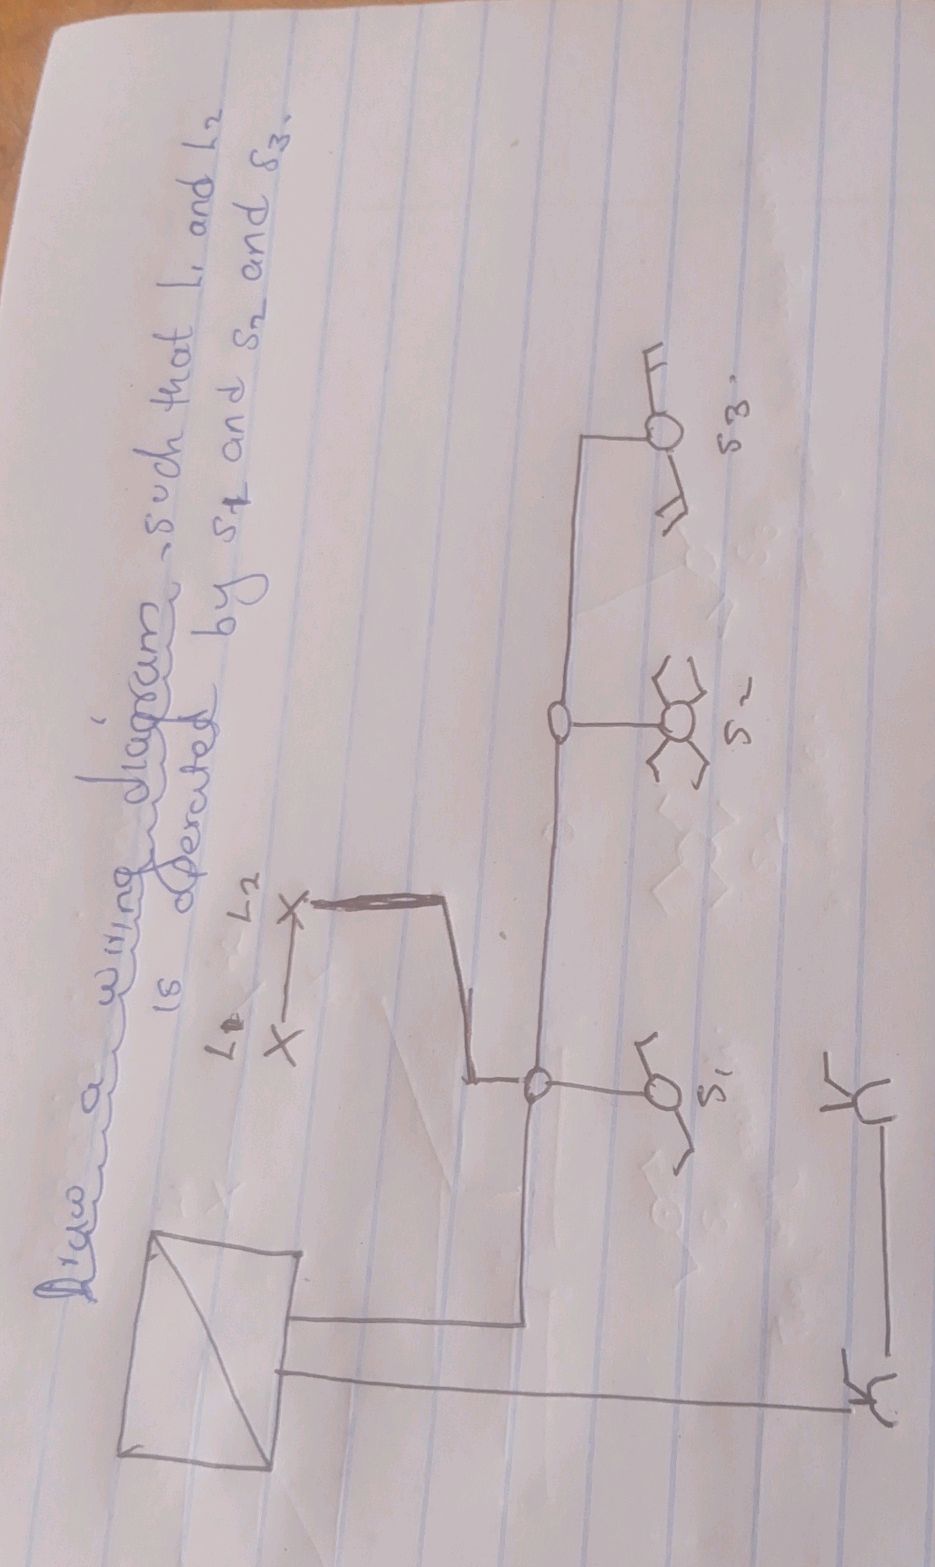 Draw a wiring diagram such that L1 and L2
is operated by S1 and S2 and S3.
L1 L2
S1 S2 S3.